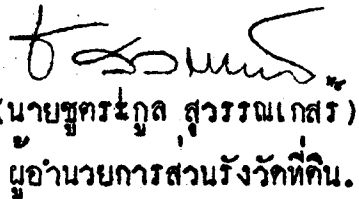 (นายชูตระกูล สุวรรณเกสร์)
ผู้อำนวยการส่วนรังวัดที่ดิน.